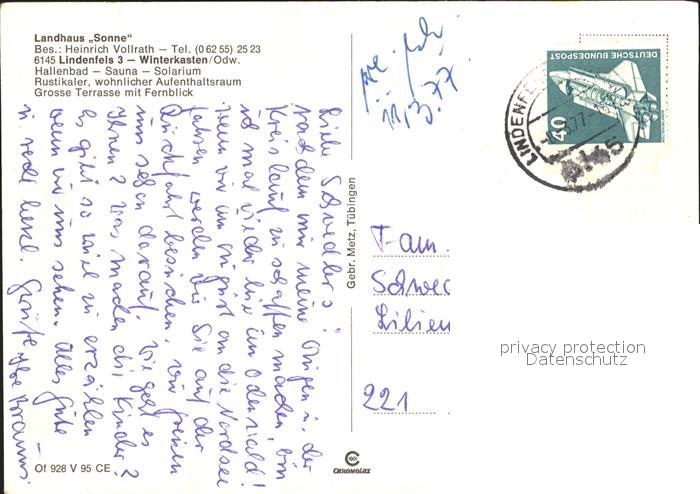 Landhaus „Sonne“
Bes.: Heinrich Vollrath — Tel. (0 62 55) 25 23
6145 Lindenfels 3 — Winterkasten/Odw.
Hallenbad — Sauna — Solarium
Rustikaler, wohnlicher Aufenthaltsraum
Grosse Terrasse mit Fernblick
11.3.77.
DEUTSCHE BUNDESPOST
40
LINDENFELS
6145
Liebe Schwedler's!
Nachdem mir meine Augen u. der
Kreislauf zu schaffen machen bin
ich mal wieder hier im Odenwald!
Wenn wir im August an die Nordsee
fahren werden wir Sie auf der
Durchfahrt besuchen, wir freuen
uns schon darauf. Wie geht es
Ihnen? Was machen die Kinder?
Es gibt so viel zu erzählen
wenn wir uns sehen. Alles Gute
u. recht herzl. Grüße Ihre Brauns.
Gebr. Metz, Tübingen
Fam.
Schwed
Lilien
221
privacy protection
Datenschutz
Of 928 V 95 CE
CHROMOLUX